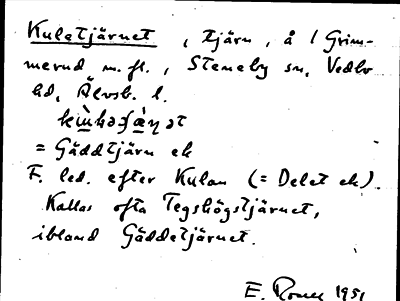 Kuletjärnet, tjärn, å / Grim-
merud m. fl., Steneby sn, Vedbo
hd, Älvsb. l.
= Gäddtjärn ek
F. led. efter Kulan (= Delet ek).
Kallas ofta Tegshögstjärnet,
ibland Gäddetjärnet.
E. 1951